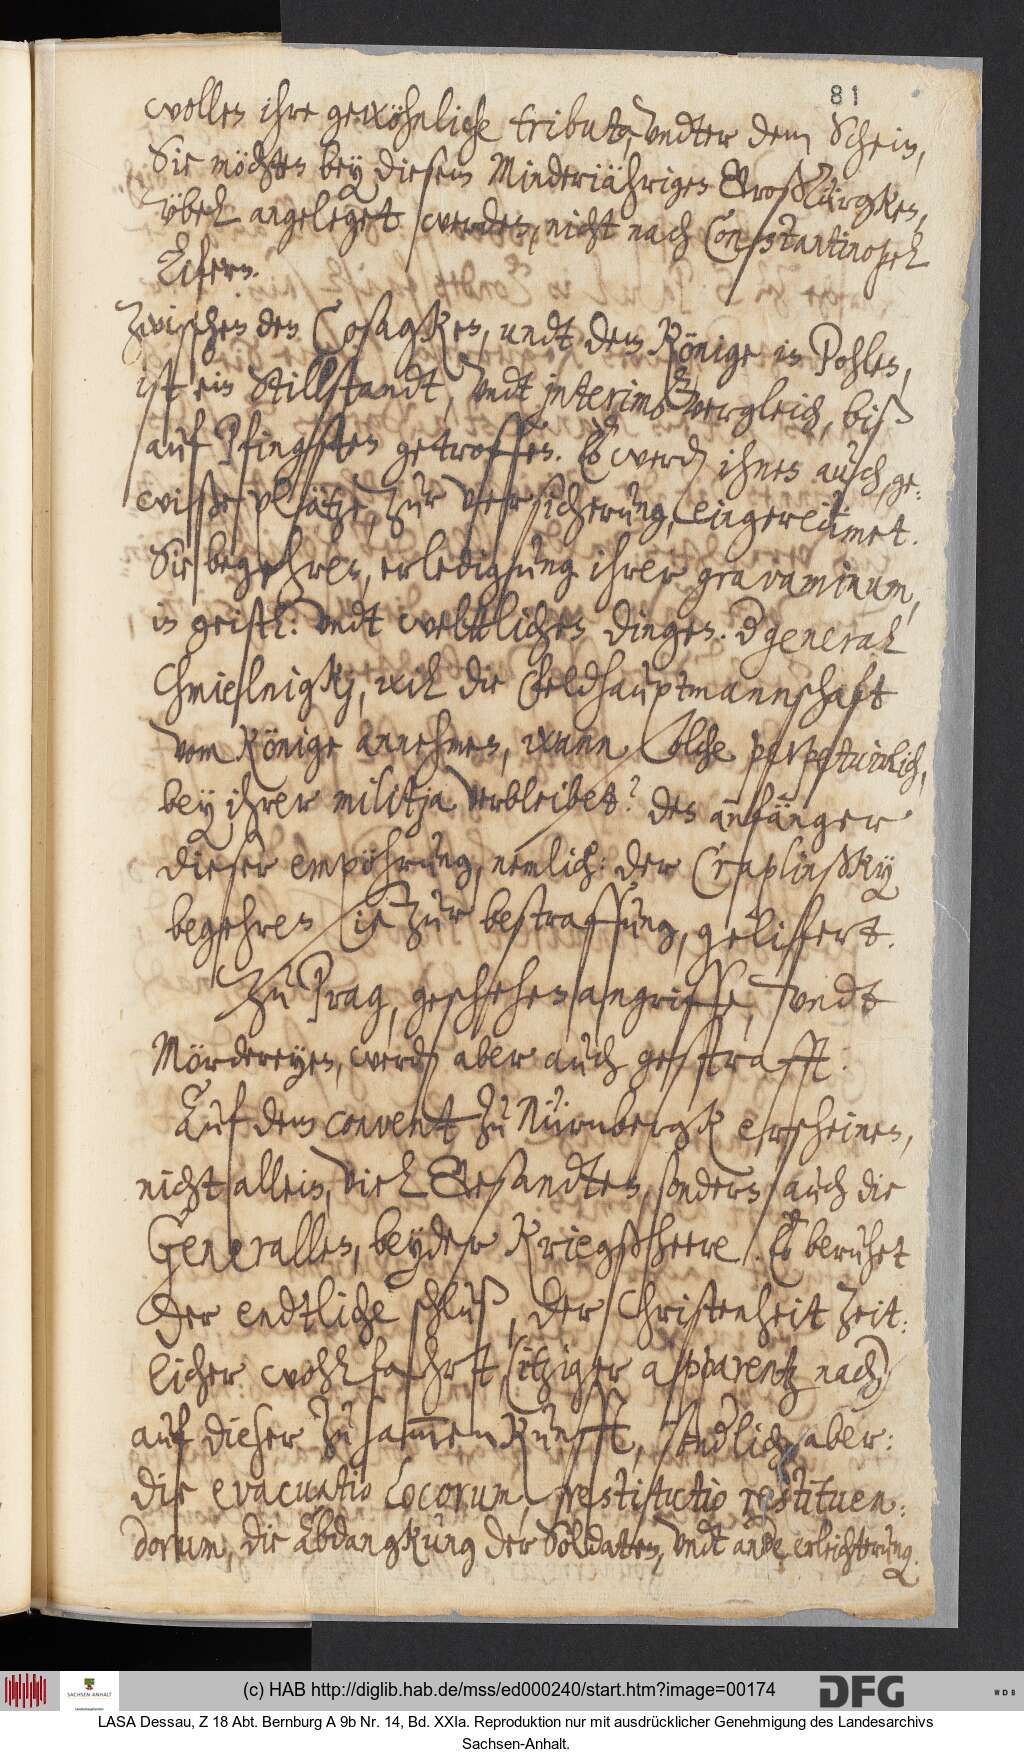 81
wollen ihre gewöhnliche tributa, vndter dem Schein,
Sie möchten bey diesem Minderjährigen GroßTürgken,
übel angeleget werden, nicht nach Constantinopel
liefern.
Zwischen den Cosagken, undt dem Könige in Pohlen,
ist ein Stillstandt, vndt jnterims vergleich, biß
auf Pfingsten getroffen. Es werd ihnen auch ge-
wiße plätze, zur versicherung, eingereümet.
Sie begehren, erledigung ihrer gravaminum,
in geistl: vndt weltlichen dingen. D general
Chmielnigkj, will die Feldhauptmannschaft
vom Könige annehmen, wann solche perpetuirlich,
bey ihrer militja verbleibet? den anfänger
dieser empöhrung, nemlich: der Craplinßky
begehren sie zur bestraffung, geliffert.
Zu Prag, geschehen angriffe, vndt
Mördereyen, werd aber auch gestrafft.
Auf dem convent zu Nürnbergk erscheinen,
nicht allein, viel Gesandten, sondern auch die
Generallen, beyder Kriegßheere. Es beruhet
der endtliche schluß, der Christenheit zeit:
licher wohlfahrt, (itziger apparentz nach)
auf dieser Zusammenkunfft, sendlich aber:
die evacuatio locorum, restitutio restituen:
dorum, die Abdangkung der Soldaten, vndt ande erleichterung.
(c) HAB http://diglib.hab.de/mss/ed000240/start.htm?image=00174
SACHSEN-ANHALT
DFG
WDB
LASA Dessau, Z 18 Abt. Bernburg A 9b Nr. 14, Bd. XXIa. Reproduktion nur mit ausdrücklicher Genehmigung des Landesarchivs
Sachsen-Anhalt.